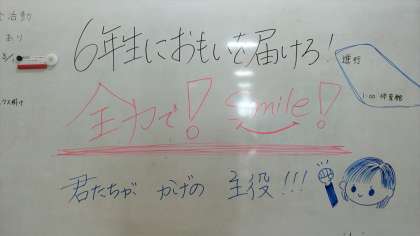 6年生におもいを届けろ!
全力で! Smile!
君たちが かげの 主役!!!
活動
あり
1:00 体育館